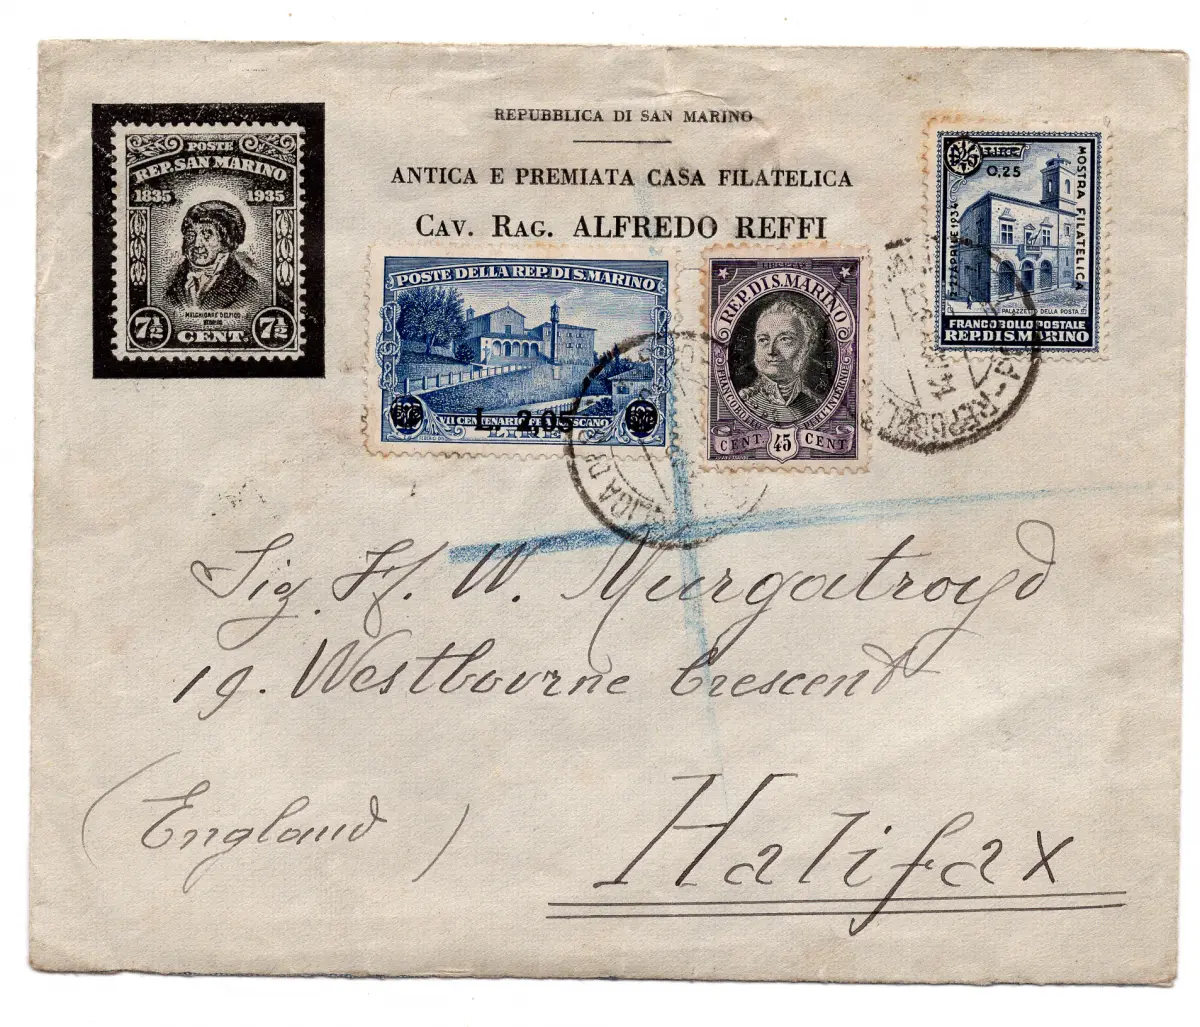 REPUBBLICA DI SAN MARINO
ANTICA E PREMIATA CASA FILATELICA
CAV. RAG. ALFREDO REFFI
POSTE
REP. SAN MARINO
1835 1935
MELCHIORRE DELFICO
7½ CENT. 7½
POSTE DELLA REP. DI S. MARINO
VII CENTENARIO FRANCESCANO
L. 2,05
LIRE
REP. DI S. MARINO
CENT. 45 CENT
LIRE
0,25
MOSTRA FILATELICA
APRILE 1934
PALAZZETTO DELLA POSTA
FRANCOBOLLO POSTALE
REP. DI S. MARINO
Sig. H. W. Murgatroyd
19. Westbourne Crescent
(England)
Halifax